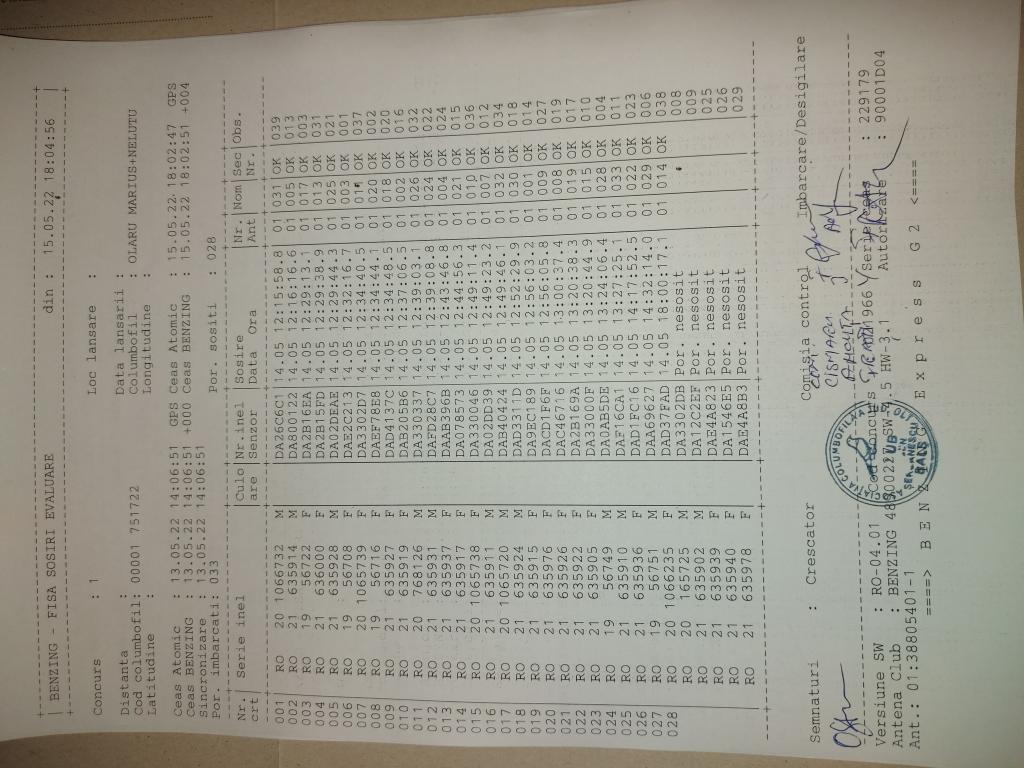 BENZING - FISA SOSIRI EVALUARE din : 15.05.22 18:04:56
Concurs : 1 Loc lansare :
Distanta : Data lansarii :
Cod columbofil: 00001 751722 Columbofil : OLARU MARIUS+NELUTU
Latitudine : Longitudine :
Ceas Atomic : 13.05.22 14:06:51 GPS Ceas Atomic : 15.05.22 18:02:47 GPS
Ceas BENZING : 13.05.22 14:06:51 +000 Ceas BENZING : 15.05.22 18:02:51 +004
Sincronizare : 13.05.22 14:06:51
Por. imbarcati: 033 Por. sositi : 028
Nr. | Serie inel |Culo|Nr.inel |Sosire |Nr. |Nom|Sec|Obs.
crt | |are |Senzor |Data Ora |Ant | |Nr.|
001 RO 20 1066732 M DA26C6C1 14.05 12:15:58.8 01 031 OK 039
002 RO 21 635914 M DA800122 14.05 12:16:16.6 01 005 OK 013
003 RO 19 56722 F DA2B16EA 14.05 12:29:13.1 01 017 OK 003
004 RO 21 636000 F DA2B15FD 14.05 12:29:38.9 01 013 OK 031
005 RO 21 635928 M DA02DEAE 14.05 12:29:44.3 01 025 OK 021
006 RO 19 56708 F DAE2C213 14.05 12:32:16.7 01 003 OK 001
007 RO 20 1065739 F DA3302D7 14.05 12:34:40.5 01 OK 037
008 RO 19 56716 F DAEF78EB 14.05 12:34:44.1 01 020 OK 002
009 RO 21 635927 M DAD4137C 14.05 12:34:48.5 01 018 OK 020
010 RO 21 635919 F DAB205B6 14.05 12:37:06.5 01 002 OK 016
011 RO 20 768126 M DA330337 14.05 12:39:03.1 01 026 OK 032
012 RO 21 635931 M DAFD28C7 14.05 12:39:08.8 01 024 OK 022
013 RO 21 635937 F DAAB39EB 14.05 12:39:46.8 01 004 OK 024
014 RO 21 635917 F DA078573 14.05 12:44:56.3 01 021 OK 015
015 RO 20 1065738 F DA330046 14.05 12:49:11.4 01 010 OK 036
016 RO 21 635911 M DA02DD39 14.05 12:49:23.2 01 007 OK 012
017 RO 20 1065720 M DAB40424 14.05 12:49:46.1 01 032 OK 034
018 RO 21 635924 M DAD3311D 14.05 12:52:29.9 01 030 OK 018
019 RO 21 635915 F DA9EC1B9 14.05 12:56:03.2 01 001 OK 014
020 RO 21 635976 F DACD1F6F 14.05 12:56:05.8 01 009 OK 027
021 RO 21 635926 F DAC46776 14.05 13:00:37.4 01 008 OK 019
022 RO 21 635922 F DA2B169A 14.05 13:20:38.3 01 019 OK 017
023 RO 21 635905 F DA33000F 14.05 13:20:44.9 01 015 OK 010
024 RO 19 56749 M DA0AB5DE 14.05 13:24:06.4 01 028 OK 004
025 RO 21 635910 M DAF16CA1 14.05 13:27:25.1 01 033 OK 011
026 RO 21 635936 F DAD1FC16 14.05 14:17:52.5 01 022 OK 023
027 RO 19 56751 M DAA69627 14.05 14:32:14.0 01 029 OK 006
028 RO 20 1066235 F DAD37FAD 14.05 18:00:17.1 01 014 OK 038
RO 20 165725 M DA3302DB Por. nesosit 008
RO 21 635902 M DA12C2EF Por. nesosit 009
RO 21 635939 F DAE4A823 Por. nesosit 025
RO 21 635940 F DA1546E5 Por. nesosit 026
RO 21 635978 F DAE4A8B3 Por. nesosit 029
Semnaturi : Crescator Comisia control Imbarcare/Desigilare
Versiune SW : RO-04.01 Cod Concurs Serie ceas : 229179
Antena Club : BENZING HW-3.1 Autorizare : 90001D04
Ant.: 01:38805401-1
====> B E N Z I N G E x p r e s G 2 <====
ASOCIATIA COLUMBOFILA